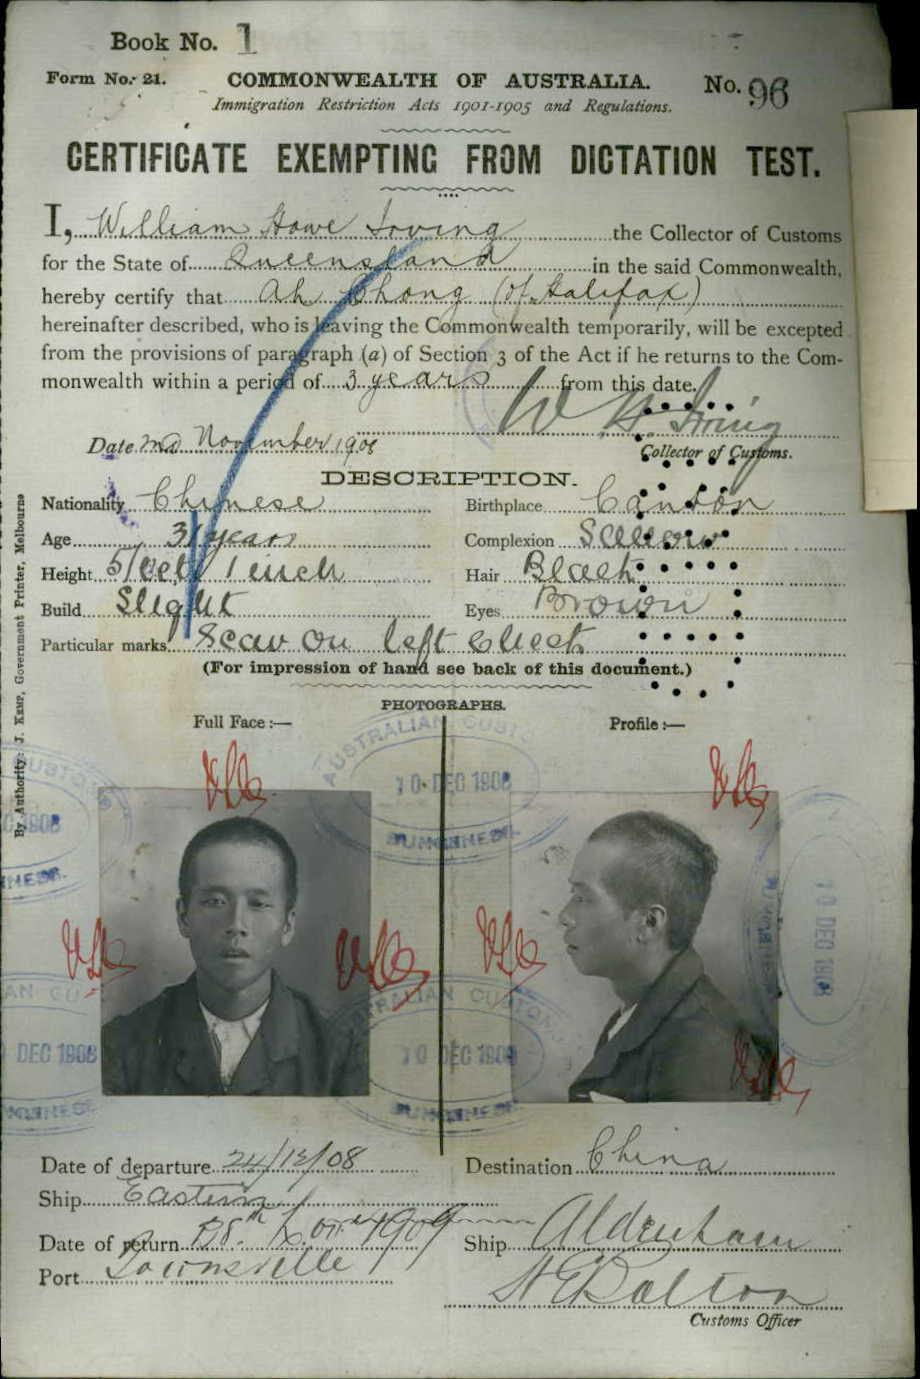 Book No. 1
Form No. 21. COMMONWEALTH OF AUSTRALIA. No. 96
Immigration Restriction Acts 1901-1905 and Regulations.
CERTIFICATE EXEMPTING FROM DICTATION TEST.
I, William Howe Irving the Collector of Customs
for the State of Queensland in the said Commonwealth,
hereby certify that Ah Chong (of Halifax)
hereinafter described, who is leaving the Commonwealth temporarily, will be excepted
from the provisions of paragraph (a) of Section 3 of the Act if he returns to the Com-
monwealth within a period of 3 years from this date.
W H Irving
Date November 1908
Collector of Customs.
DESCRIPTION.
Nationality Chinese Birthplace Canton
Age 31 years Complexion Sallow
Height 5 feet 1 inch Hair Black
Build Slight Eyes Brown
Particular marks Scar on left cheek
(For impression of hand see back of this document.)
By Authority: J. Kemp, Government Printer, Melbourne
PHOTOGRAPHS.
Full Face :— Profile :—
AUSTRALIAN CUSTOMS
10 DEC 1908
10 DEC 1908
DEC 1908
AUSTRALIAN CUSTOMS
10 DEC 1908
Date of departure 24/12/08 Destination China
Ship Eastern
Date of return 1909 Ship Aldenham
Port Townsville
Customs Officer